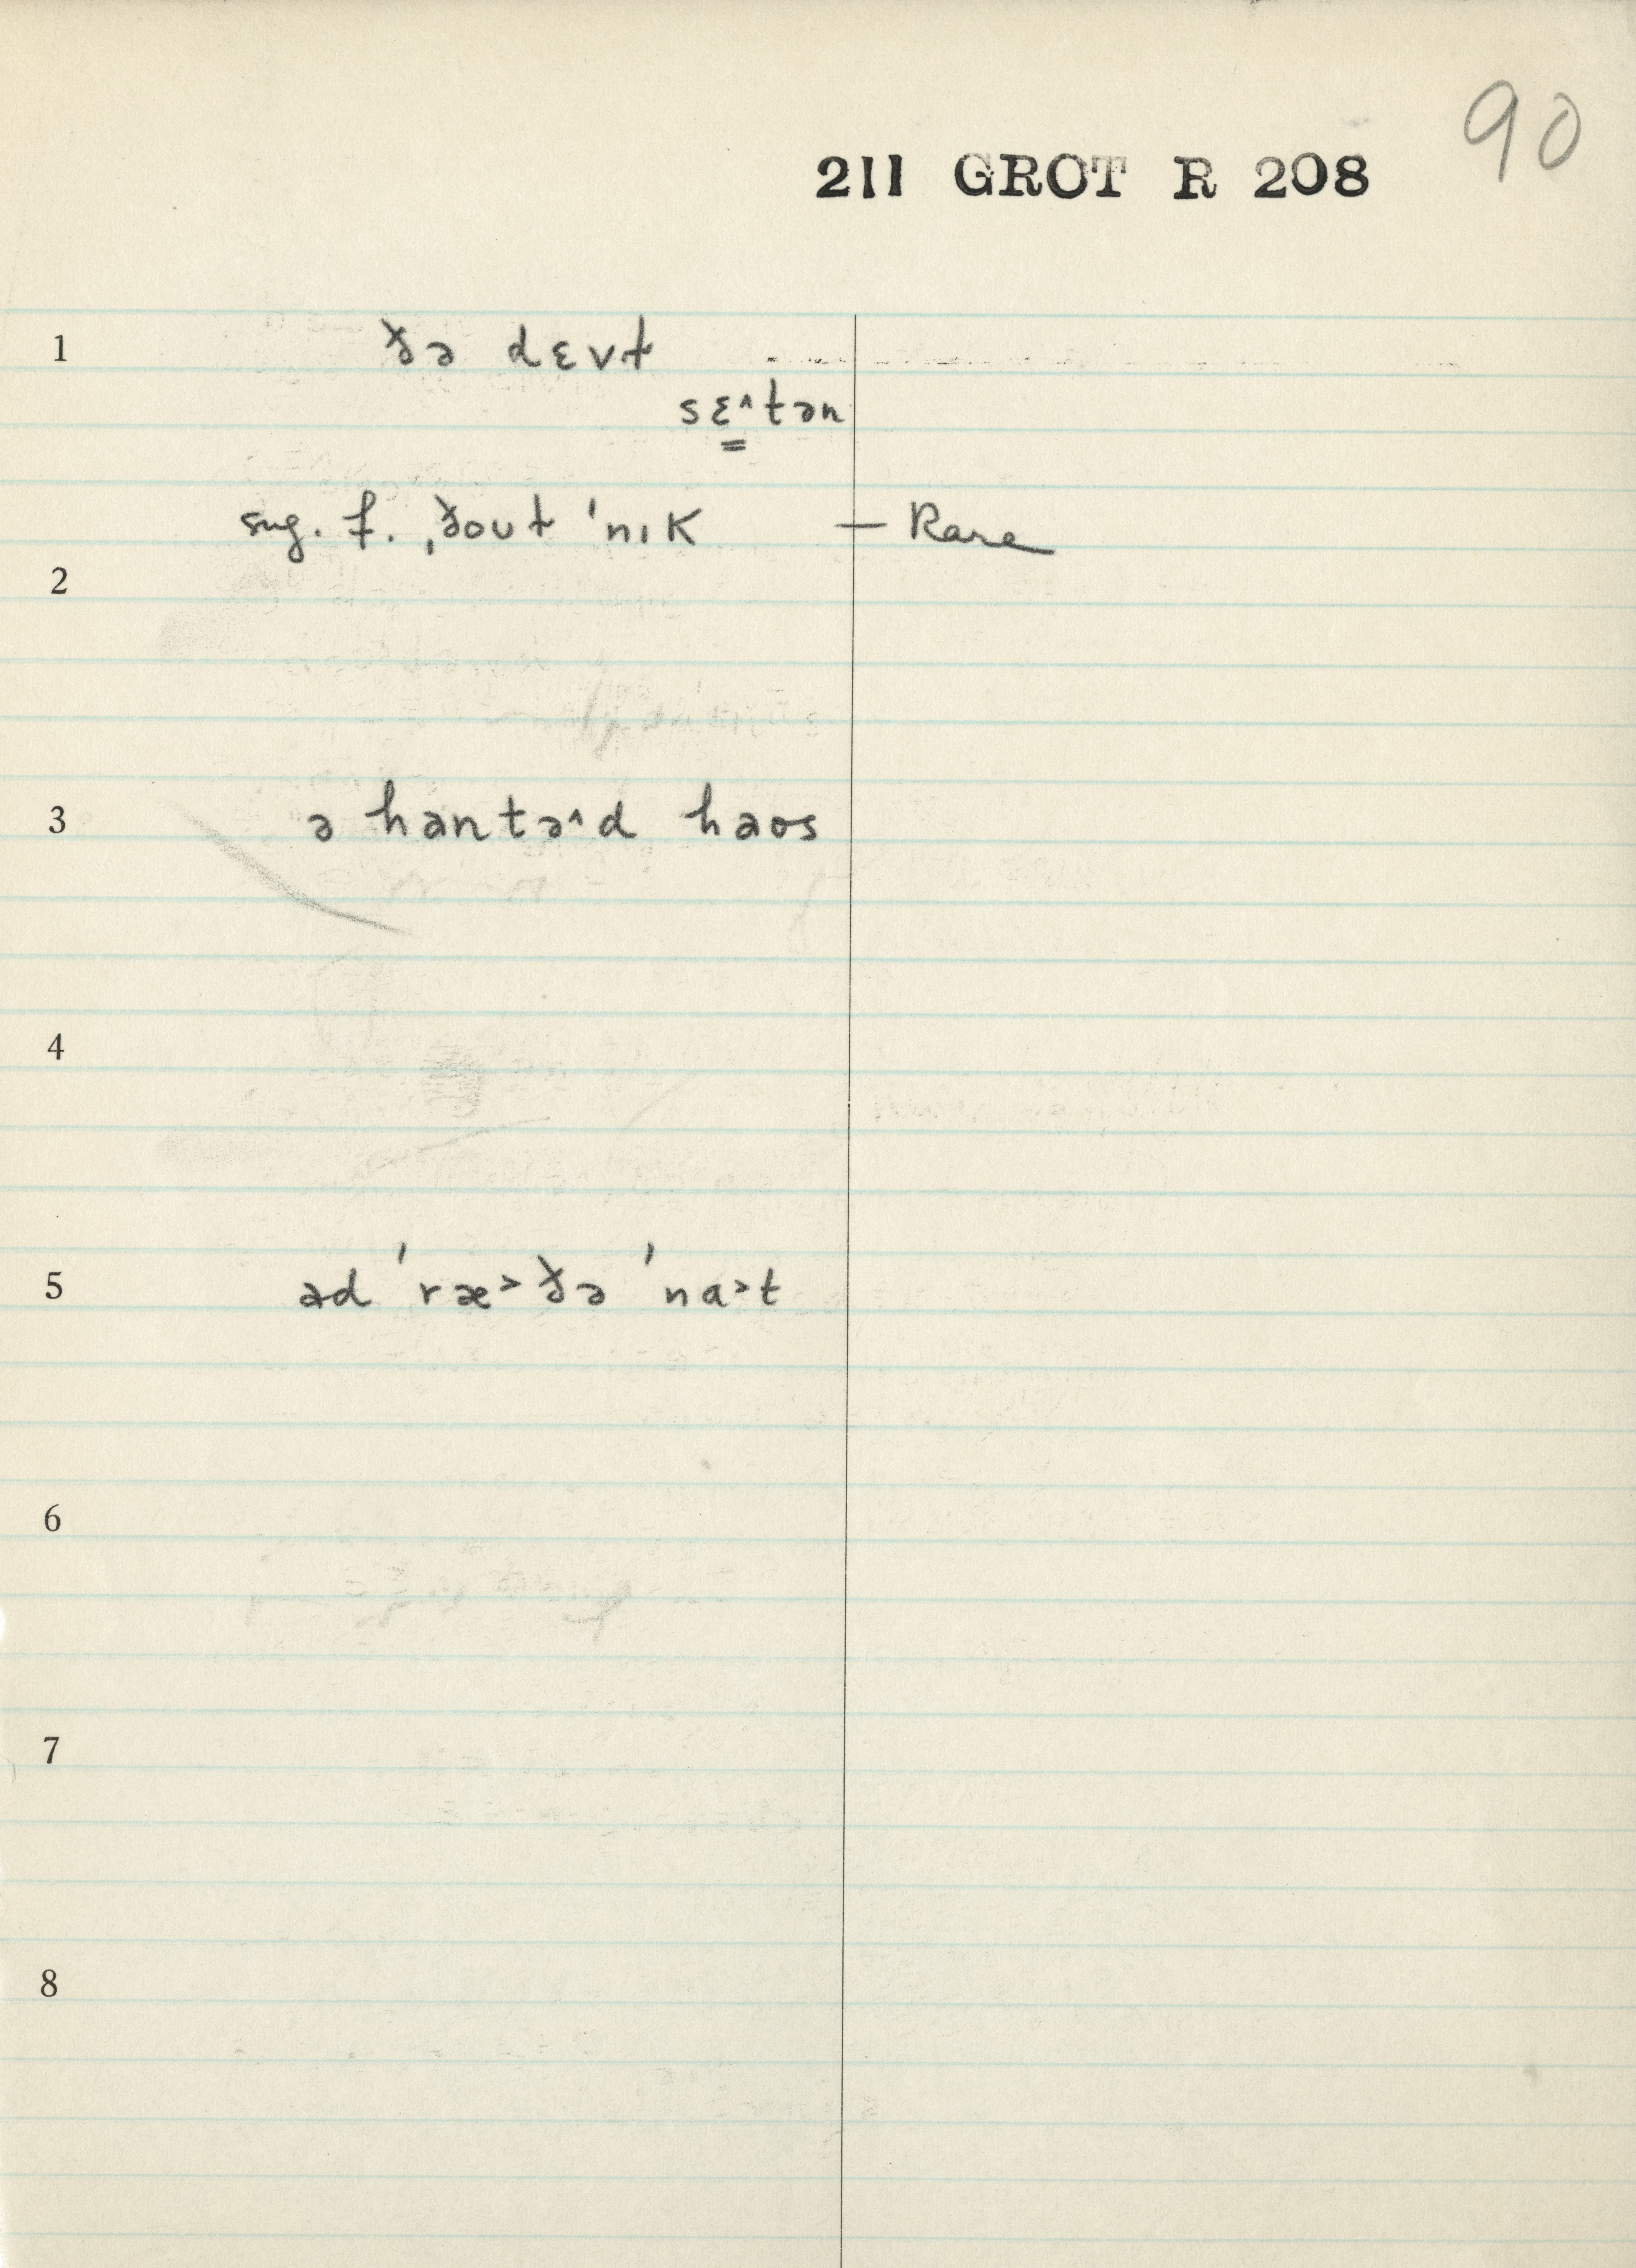 90
211 GROT R 208
1 ðə dɛvɫ
sɛ̳˄tən
sug. f. ˌðouɫ ˈnɪk — Rare
2
3 ə hantə˄d haos
4
5 əd ˈræ˃ðə ˈna˃t
6
7
8